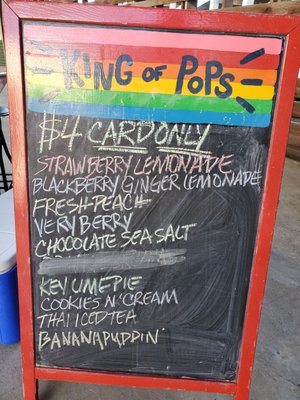 KING OF POPS
$4 CARD ONLY
STRAWBERRY LEMONADE
BLACKBERRY GINGER LEMONADE
FRESH PEACH
VERY BERRY
CHOCOLATE SEA SALT
KEY LIME PIE
COOKIES N' CREAM
THAI ICED TEA
BANANA PUDDIN'